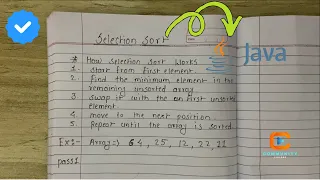 Selection Sort
Java
* How Selection Sort works
1. Start from first element.
2. Find the minimum element in the
remaining unsorted array
3. Swap it with the first unsorted
element
4. move to the next position.
5. Repeat until the array is sorted.
COMMUNITY
Ex:- Array:> 64, 25, 12, 22, 21
pass1